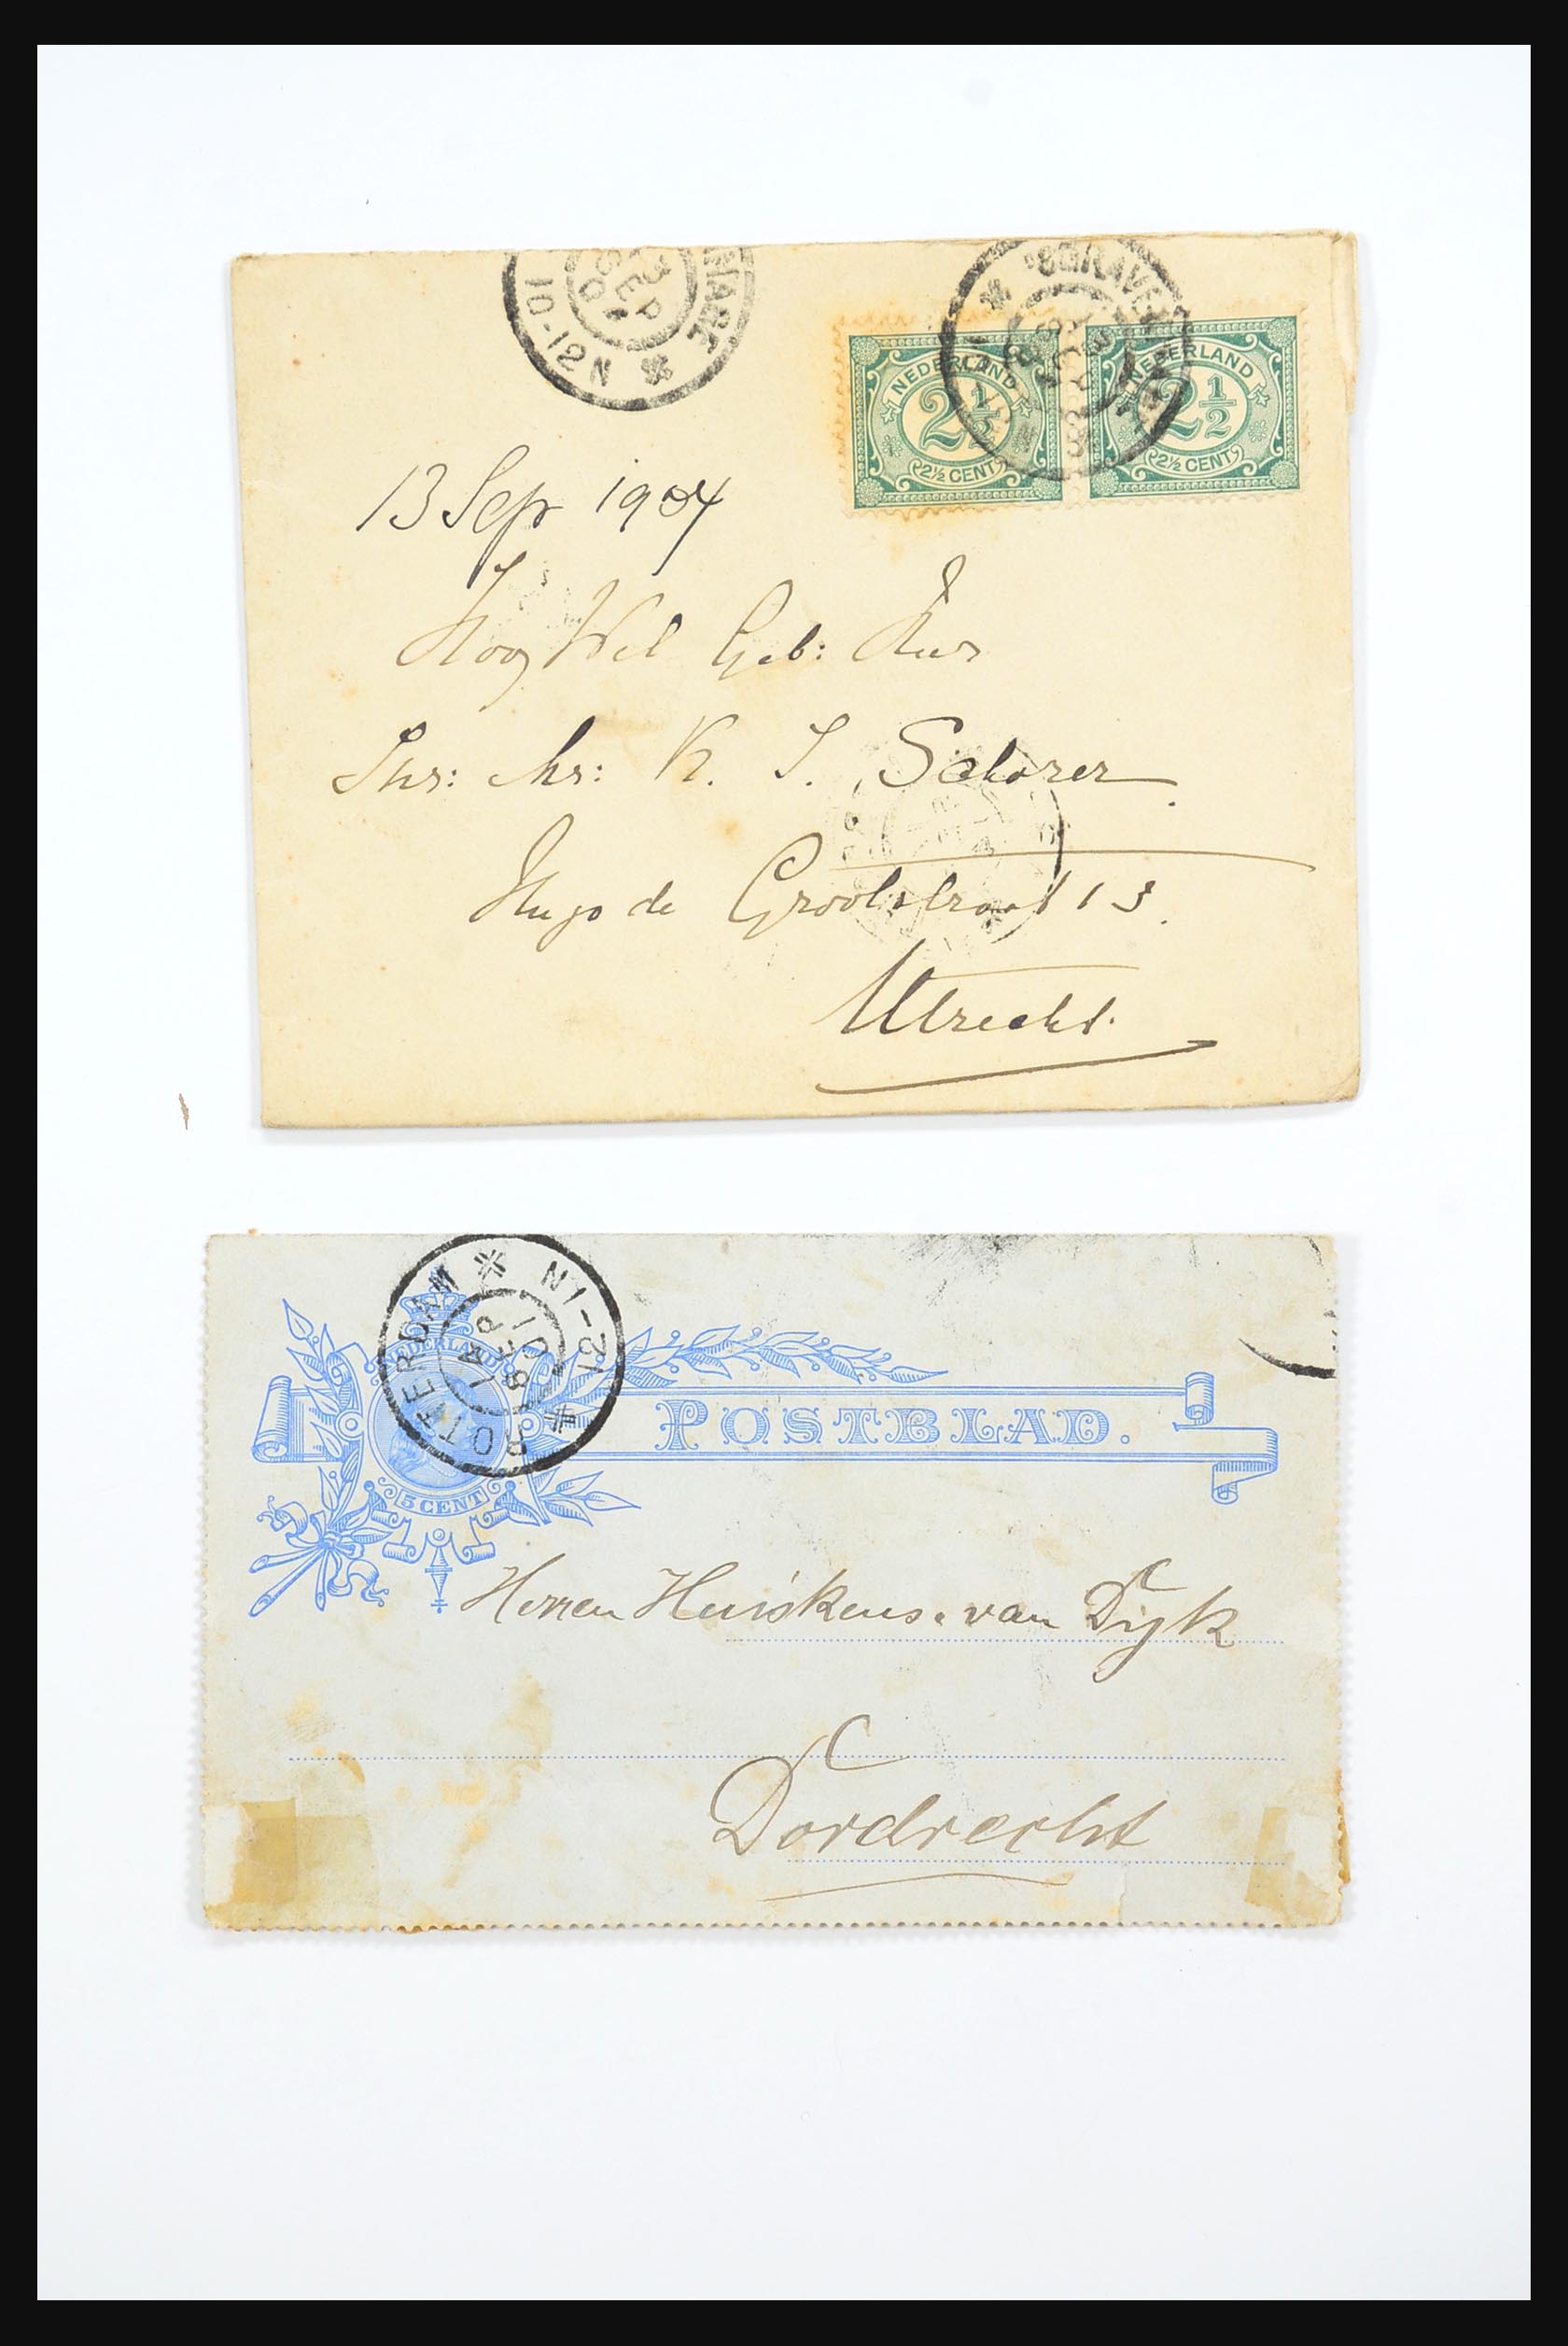 NHAGE
3
SEP
10-12N
'SGRAVE
NEDERLAND
2½
2½ CENT
NEDERLAND
2½
2½ CENT
13 Sep 1904
Hoog Wel Geb: Heer
Jhr: Mr: K. J. Schorer
Hugo de Grootstraat 13.
Utrecht.
ROTTERDAM
12-1N
14 SEP
01
NEDERLAND
5 CENT
POSTBLAD.
Heeren Huiskens & van Dijk
Dordrecht